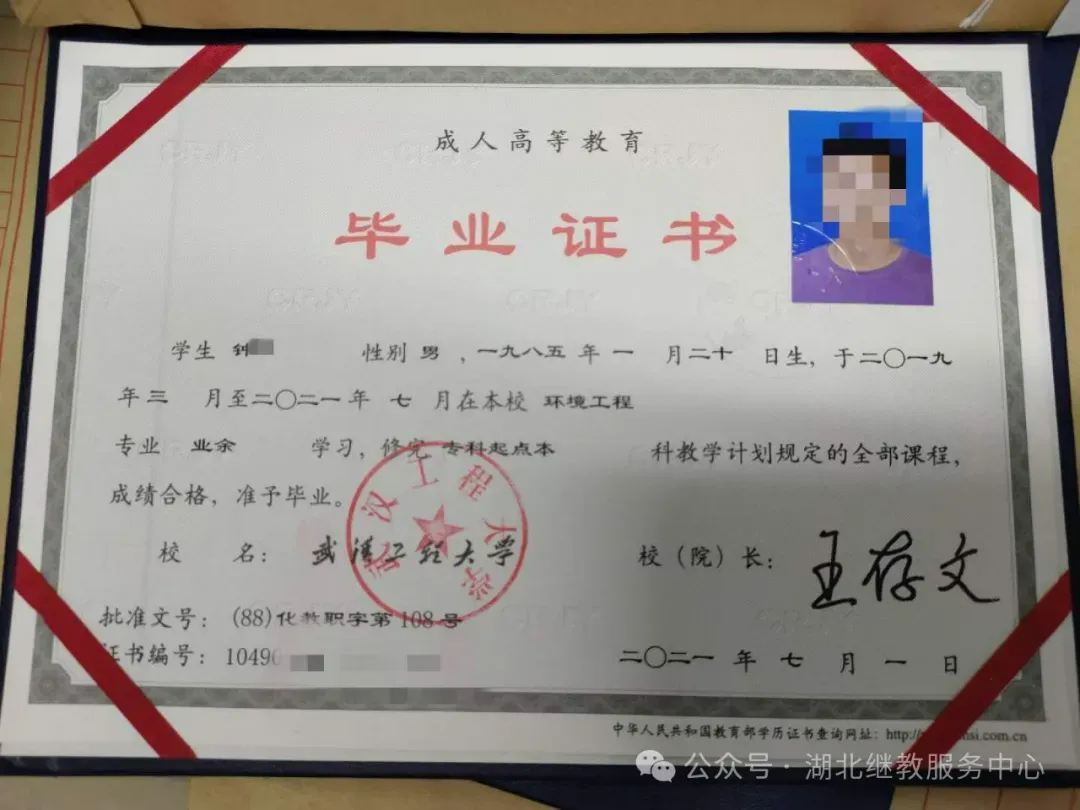 成人高等教育
毕业证书
学生 钟 性别 男 ,一九八五 年 一 月二十 日生, 于二〇一九
年 三 月至二〇二一 年 七 月在本校 环境工程
专业 业余 学习, 修完 专科起点本 科教学计划规定的全部课程,
成绩合格, 准予毕业。
武汉工程大学
校 名: 武汉工程大学 校(院)长: 王存文
批准文号: (88)化教职字第108号
证书编号: 10490
二〇二一 年 七 月 一 日
中华人民共和国教育部学历证书查询网址: http://
si.com.cn
公众号 · 湖北继教服务中心